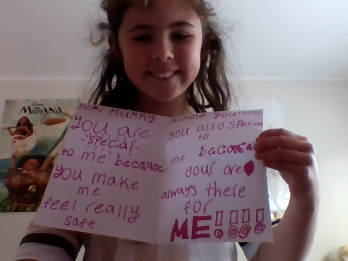 Disney
MOANA
Dear Mummy
you are
special
to me because
you make
me
feel really
safe
around you!!!!
you also special
to
me because
your are
always there
for
ME!!!!